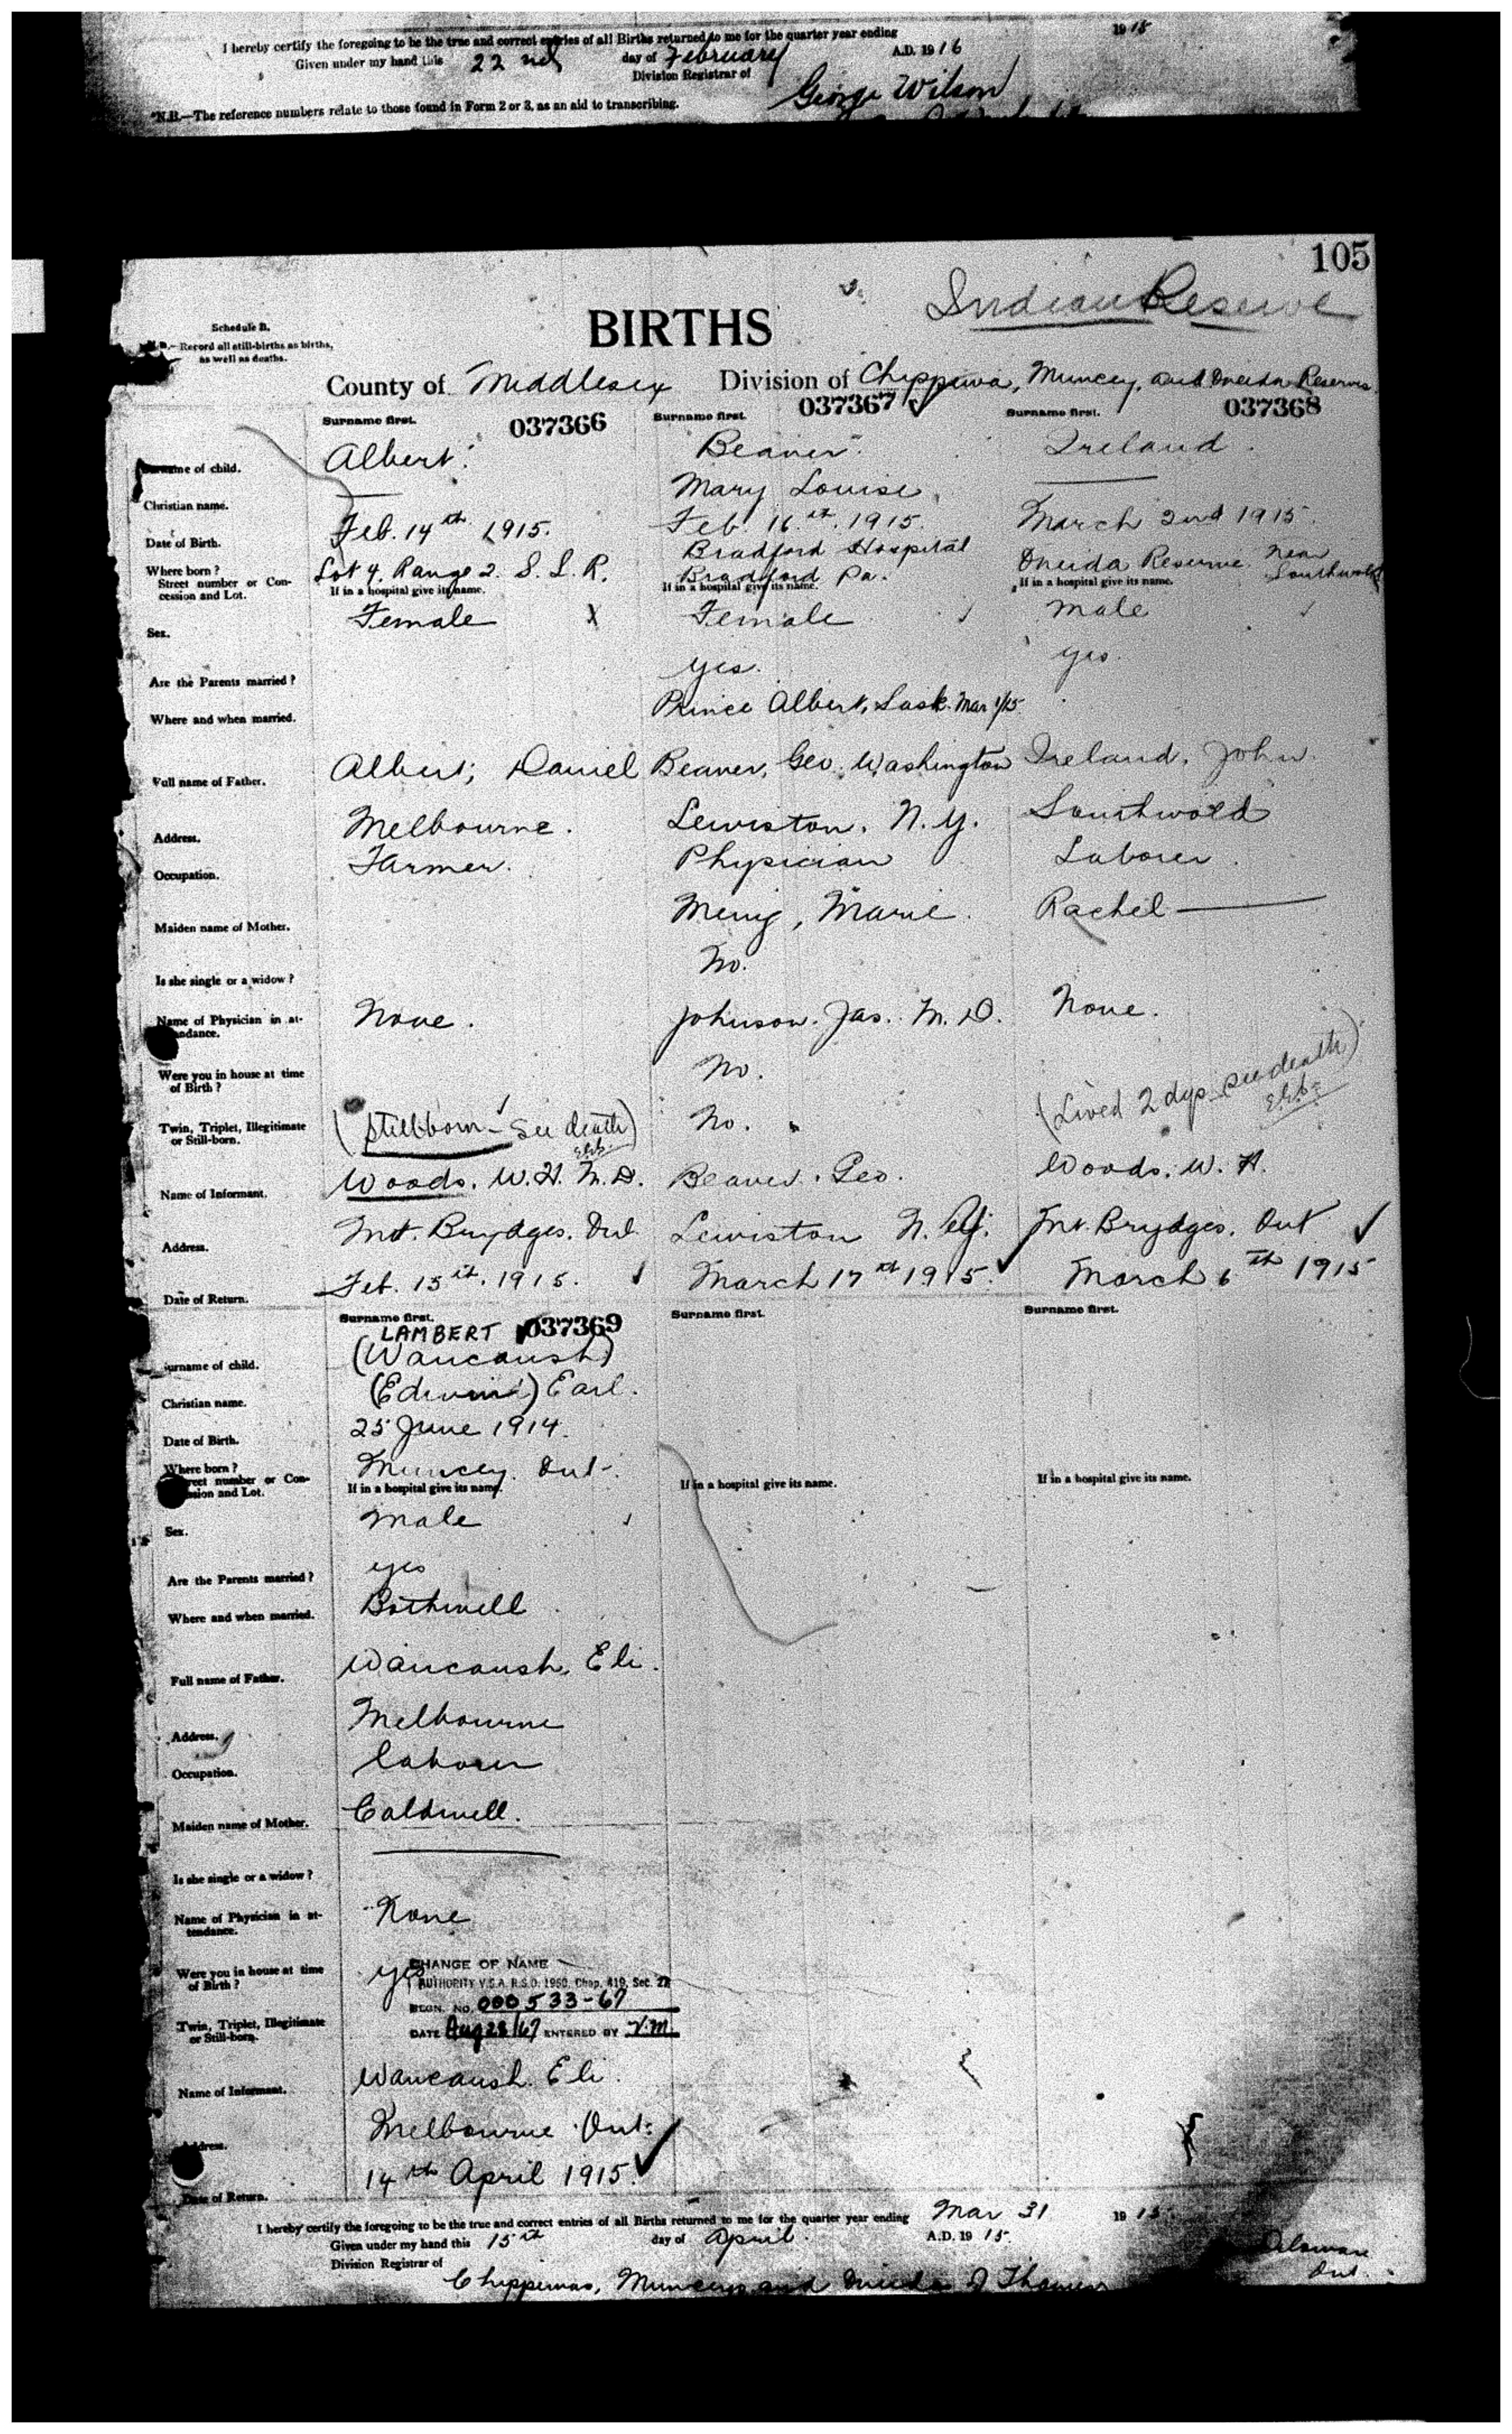 I hereby certify the foregoing to be the true and correct entries of all Births returned to me for the quarter year ending 1915
Given under my hand this 22nd day of February A.D. 1916
Division Registrar of George Wilson
*N.B.—The reference numbers relate to those found in Form 2 or 3, as an aid to transcribing.
105
Indian Reserve
Schedule B.
BIRTHS
—Record all still-births as births,
as well as deaths.
County of Middlesex Division of Chippewa, Muncey, and Oneida Reserves
Surname first. 037366 Surname first. 037367 Surname first. 037368
Surname of child. Albert. Beaver. Ireland.
Christian name. — Mary Louise —
Date of Birth. Feb. 14th 1915. Feb. 16th. 1915. March 2nd 1915.
Where born? Street number or Concession and Lot. Lot 4. Range 2. S. L. R. Bradford Hospital Bradford Pa. Oneida Reserve near Southwold
If in a hospital give its name. If in a hospital give its name. If in a hospital give its name.
Sex. Female X Female male
Are the Parents married? yes. yes.
Where and when married. Prince Albert, Sask. Mar 1/15
Full name of Father. Albert, Daniel Beaver, Geo. Washington Ireland, John.
Address. Melbourne. Lewiston, N.Y. Southwold
Occupation. Farmer. Physician Laborer.
Maiden name of Mother. Marie. Rachel —
Is she single or a widow? No.
Name of Physician in attendance. None. Johnson. Jas. M.D. None.
Were you in house at time of Birth? No.
Twin, Triplet, Illegitimate or Still-born. (Stillborn - See death) No. (Lived 2 dys. see death)
Name of Informant. Woods. W. H. M.D. Beaver. Geo. Woods. W. H.
Address. Mt. Brydges. Ont. Lewiston N.Y. Mt. Brydges. Ont
Date of Return. Feb. 15th. 1915. March 17th 1915. March 6th 1915
Surname first. 037369 Surname first. Surname first.
LAMBERT
Surname of child. (Waucaush)
Christian name. (Edwin) Earl.
Date of Birth. 25 June 1914.
Where born? Street number or Concession and Lot. Muncey. Ont.
If in a hospital give its name. If in a hospital give its name. If in a hospital give its name.
Sex. Male
Are the Parents married? yes
Where and when married. Bothwell
Full name of Father. Waucaush, Eli.
Address. Melbourne
Occupation. labourer
Maiden name of Mother. Caldwell.
Is she single or a widow? —
Name of Physician in attendance. None
Were you in house at time of Birth? yes
CHANGE OF NAME
AUTHORITY V.S.A. R.S.O. 1960, Chap. 419, Sec. 27
REGN. NO. 000533-67
DATE Aug 28/67 ENTERED BY V.M.
Twin, Triplet, Illegitimate or Still-born.
Name of Informant. Waucaush. Eli.
Address. Melbourne Ont.
Date of Return. 14th April 1915.
I hereby certify the foregoing to be the true and correct entries of all Births returned to me for the quarter year ending Mar 31 1915
Given under my hand this 15th day of April A.D. 1915.
Division Registrar of Delaware
Chippewas, Munceys and Oneidas Ont.